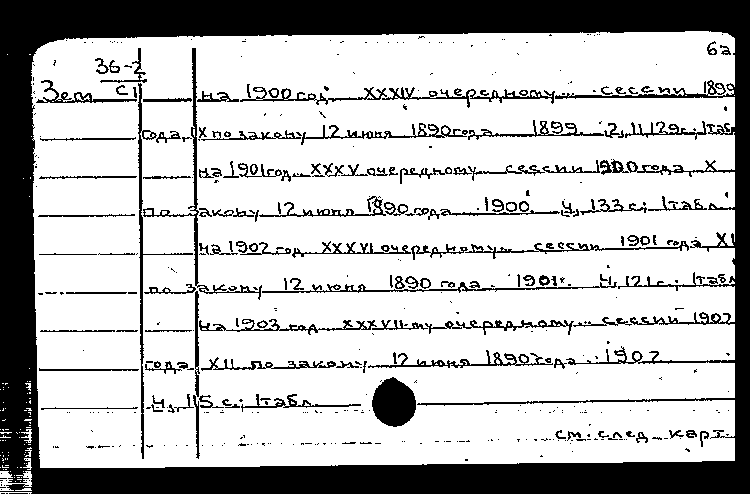 62.
36-2
Зем С1 на 1900 год. XXXIV очередному... сессии 1899
года, IX по закону 12 июня 1890 года. 1899. 2, II, 129 с.; 1 табл
на 1901 год. XXXV очередному... сессии 1900 года, X
по закону 12 июня 1890 года. 1900. 4, 133 с.; 1 табл.
на 1902 год. XXXVI очередному... сессии 1901 года, XI
по закону 12 июня 1890 года. 1901. 4, 121 с.; 1 табл
на 1903 год. XXXVII-му очередному... сессии 1902
года, XII по закону 12 июня 1890 года. 1902
4, 115 с.; 1 табл.
см. след. карт.